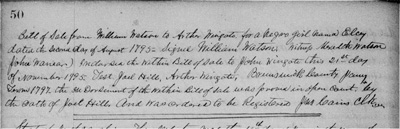 50
Bill of Sale from William Watson to Arthur Wingate for a Negro girl Named Elcey
dated the Second day of August 1795. Signed William Watson Witness Meredith Watson
John Wancar. Endorsed the Within Bill of Sale to John Wingate this 21st day
of November 1795. Test Joel Hill. Arthur Wingate. Brunswick County January
Term 1797. the Endorsement of the Within Bill of Sale was proved in open Court by
the Oath of Joel Hills And was ordered to be Registered Jas Cains Clk